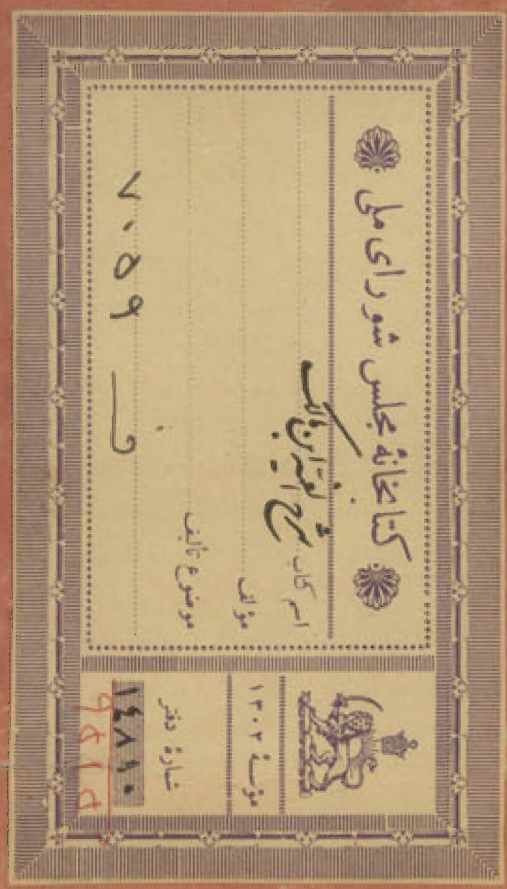 کتابخانهٔ مجلس شورای ملی
اسم کتاب شرح الفیه ابن مالک
مؤلف
موضوع تألیف
۷۰۵۹
مؤسسهٔ ۱۳۰۲
شمارهٔ دفتر
۱۴۸۸۰